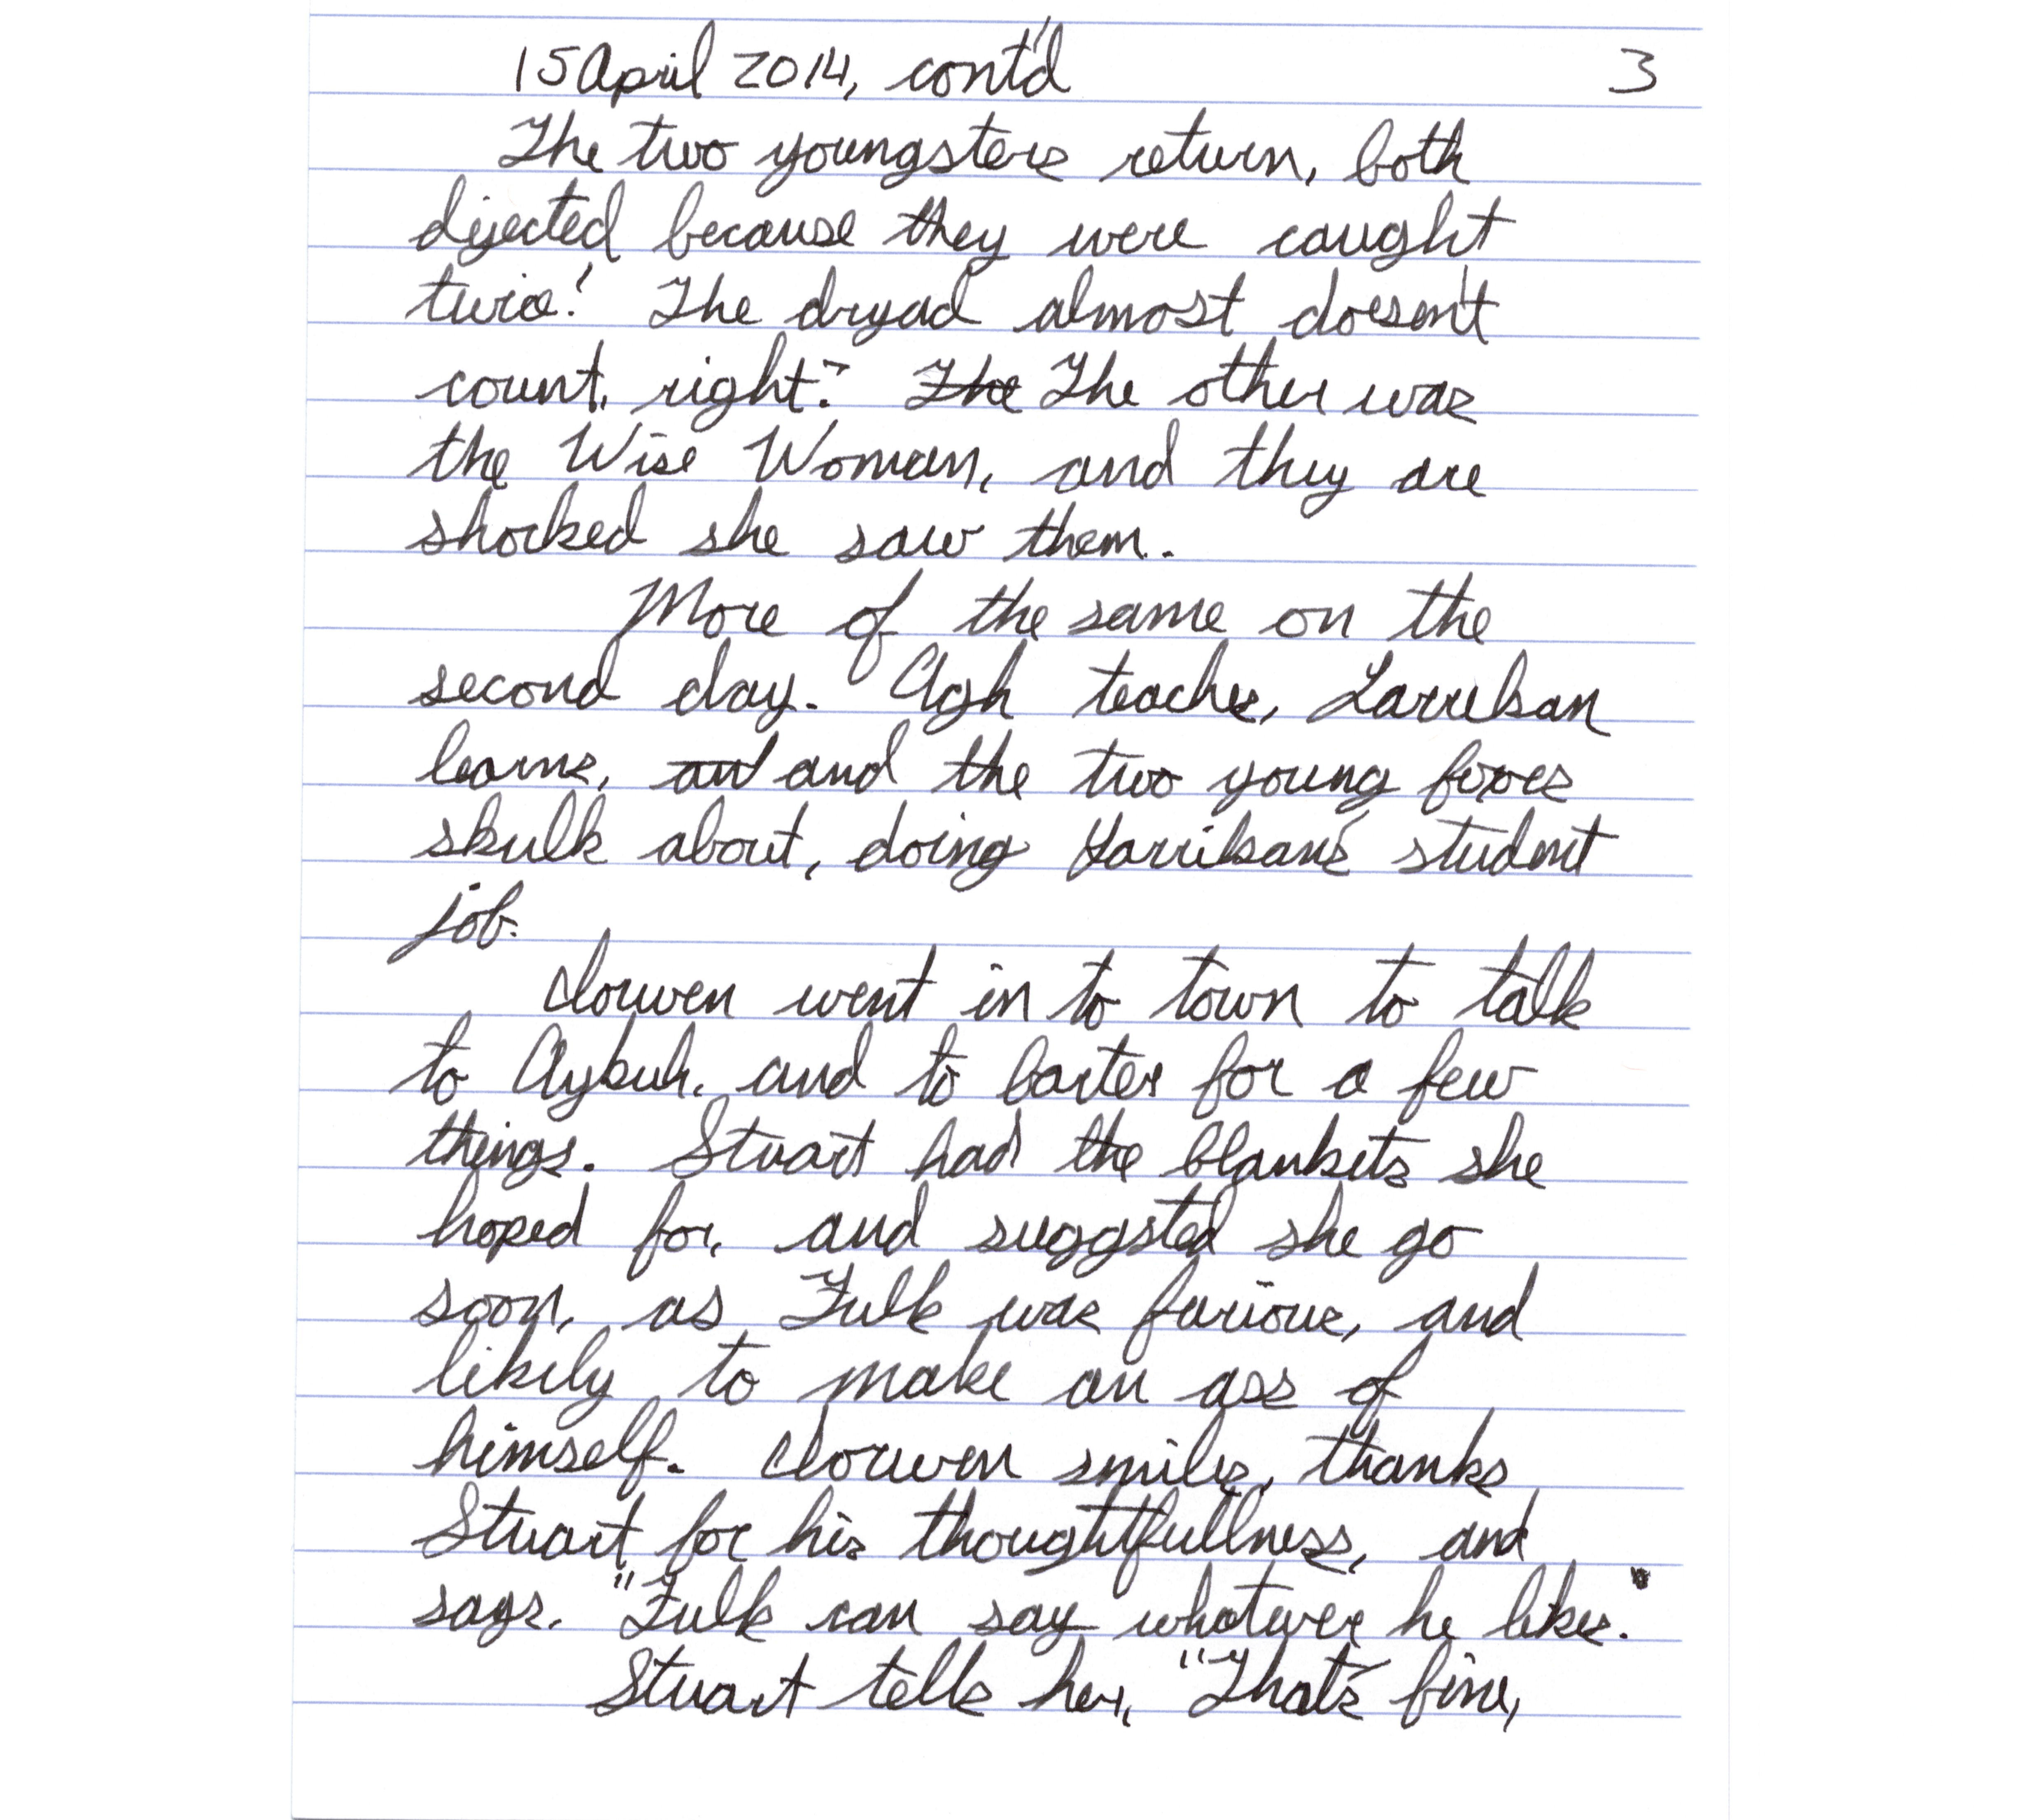 15 April 2014, cont'd 3
The two youngsters return, both
dejected because they were caught
twice! The dryad almost doesn't
count, right? The The other was
the Wise Woman, and they are
shocked she saw them.
More of the same on the
second day. Agh teaches, Larrikan
learns, and and the two young foxes
skulk about, doing Larrikan's student
job.
Clorwen went in to town to talk
to Aybuh, and to barter for a few
things. Stuart had the blankets she
hoped for, and suggsted she go
soon, as Fulk was furious, and
likely to make an ass of
himself. Clorwen smiles, thanks
Stuart for his thoughtfullness, and
says, "Fulk can say whatever he likes."
Stuart tells her, "That's fine,